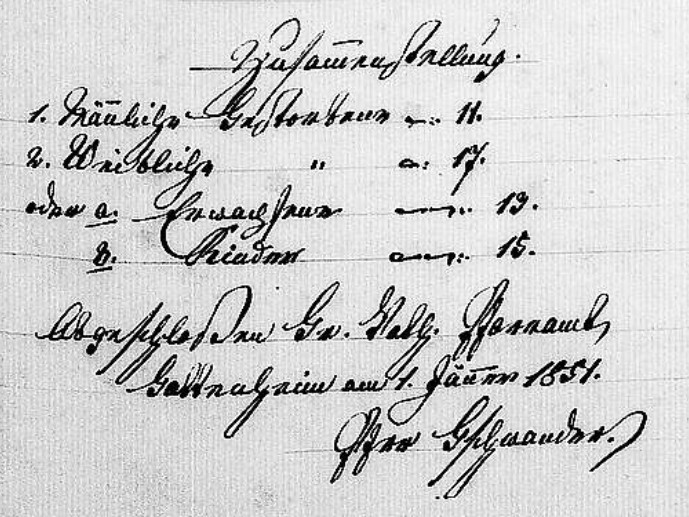 Zusammenstellung.
1. Männliche Gestorbene 11.
2. Weibliche " 17.
oder a. Erwachsene 13.
b. Kinder 15.
Abgeschlossen Gr. Kath. Pfarramt
Gottenheim am 1. Jänner 1851.
Pfrr Gschwander.